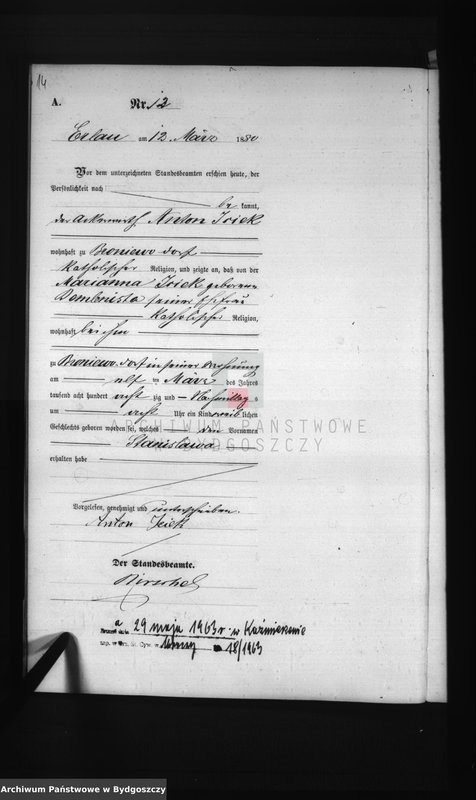 14
A. Nr. 12
Exlau am 12 März 1880
Vor dem unterzeichneten Standesbeamten erschien heute, der
Persönlichkeit nach
be kannt,
der Ackerwirth Anton Icick
wohnhaft zu Broniewo dorf
katholischer Religion, und zeigte an, daß von der
Marianna Icick geborene
Dombruska seiner Ehefrau
katholischer Religion,
wohnhaft bei ihm
zu Broniewo dorf in seiner Wohnung
am elf ten März des Jahres
tausend acht hundert acht zig und Nachmittag s
um acht Uhr ein Kind weib lichen
Geschlechts geboren worden sei, welches den Vornamen
Stanislawa
erhalten habe
ARCHIWUM PAŃSTWOWE
W BYDGOSZCZY
Vorgelesen, genehmigt und unterschrieben.
Anton Icick
Der Standesbeamte.
a
29 maja 1963 r. w Kaźmierzewie
18/1963
Archiwum Państwowe w Bydgoszczy